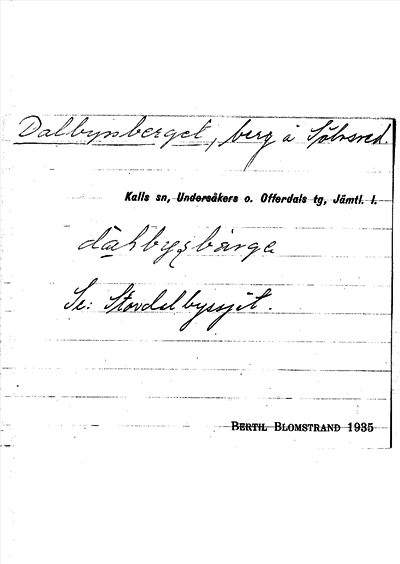 Dalbynberget, berg å Sölvsved.
Kalls sn, Undersåkers o. Offerdals tg, Jämtl. l.
dalbyŋbärge
Se: Stordalbyssjöt.
BERTIL BLOMSTRAND 1935